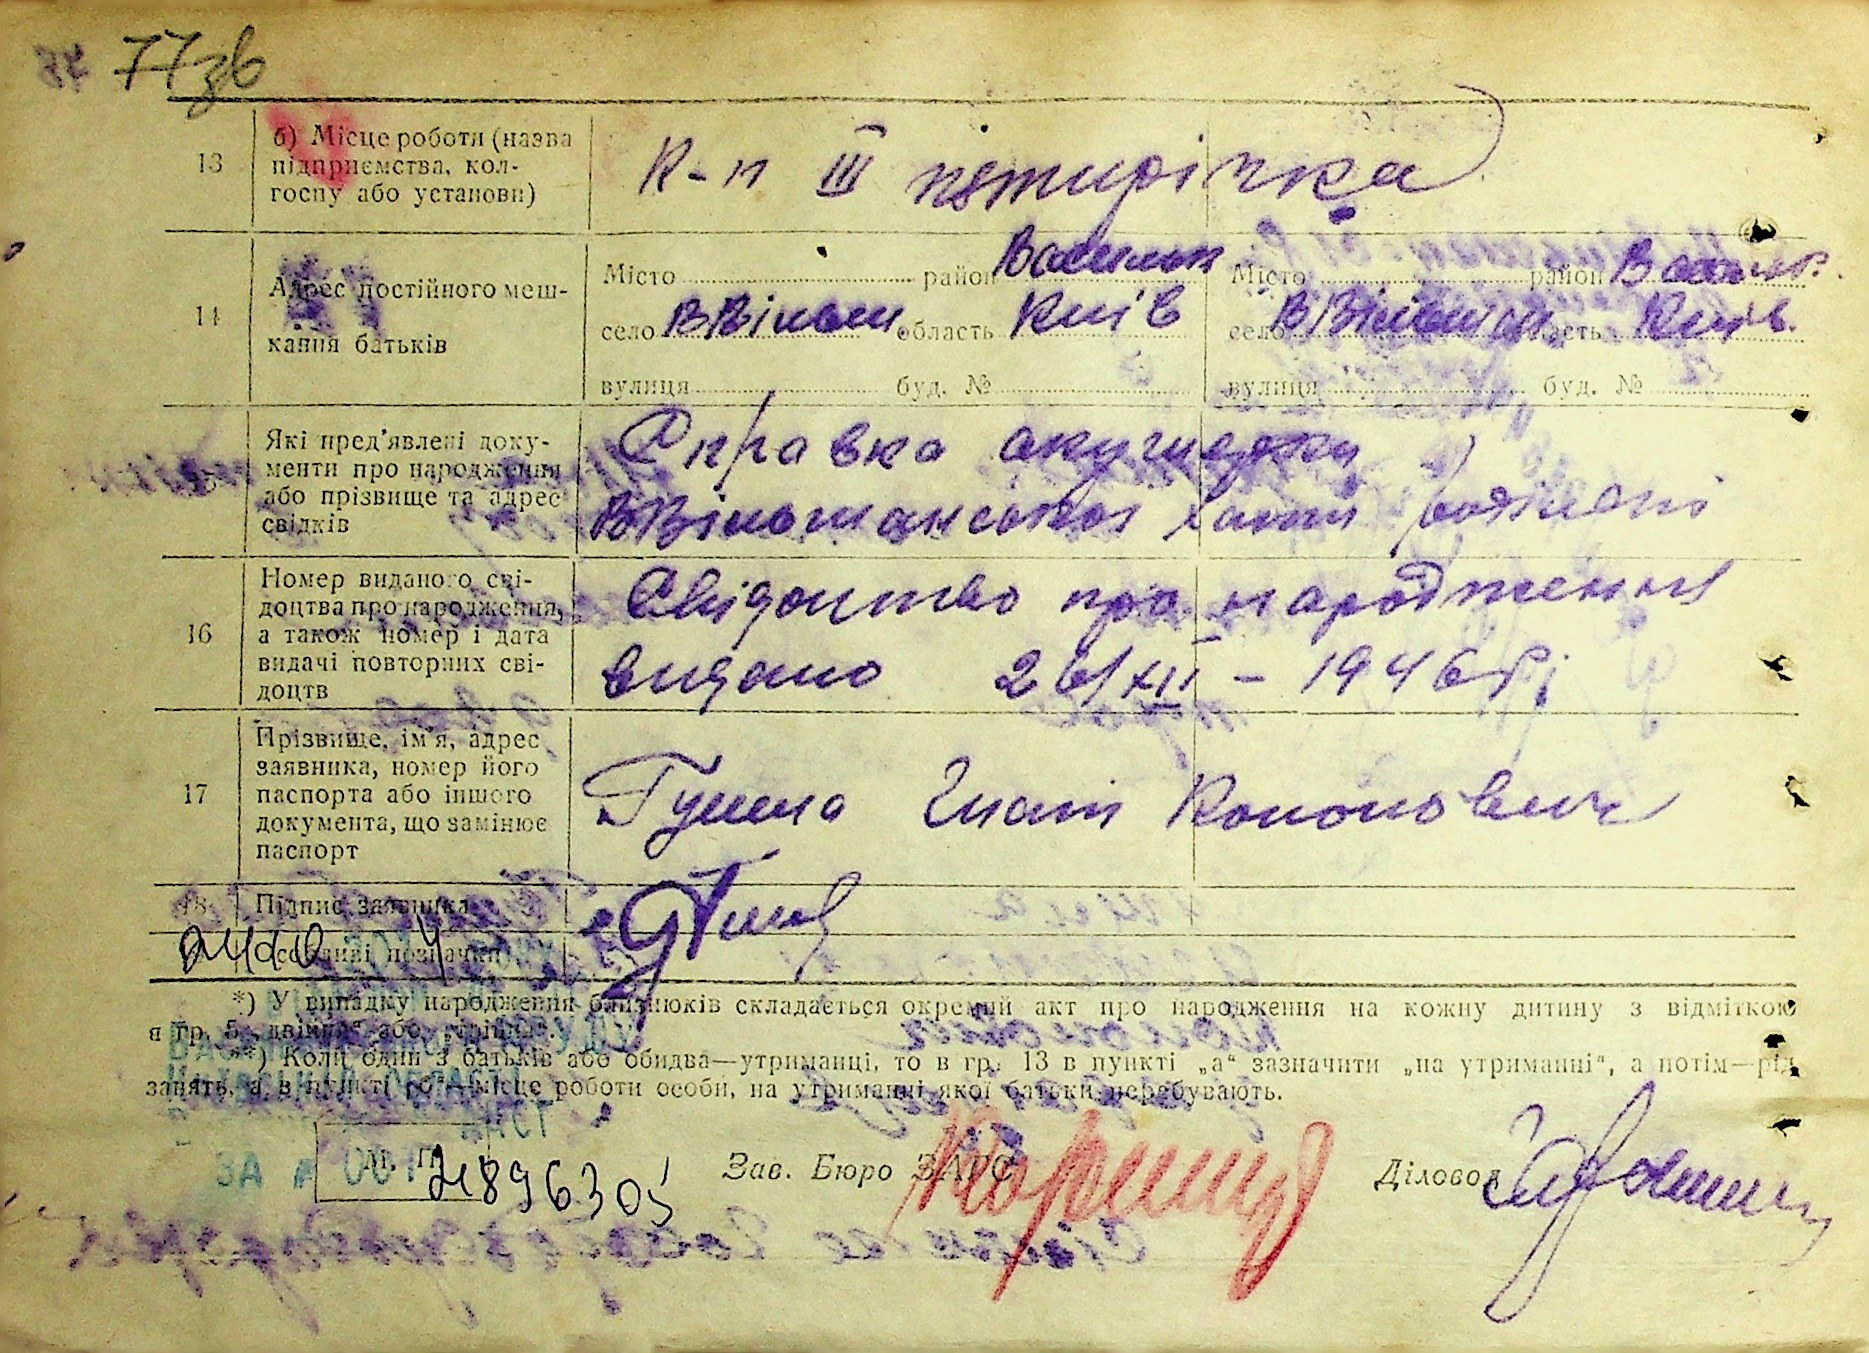 77зв
13
б) Місце роботи (назва
підприємства, кол-
госпу або установи)
К-п III пятирічка
14
Адрес постійного меш-
кання батьків
Місто район Васильк Місто район Васильк.
село ВВільш. область Київ село ВВільшан область Київ.
вулиця буд. № вулиця буд. №
Які пред'явлені доку-
менти про народження
або прізвище та адрес
свідків
Справка акушерки
ВВільшанської хати
16
Номер виданого сві-
доцтва про народження,
а також номер і дата
видачі повторних сві-
доцтв
Свідоцтво про народження
видано 26/XII – 1946 р.
17
Прізвище, ім'я, адрес
заявника, номер його
паспорта або іншого
документа, що замінює
паспорт
Гуменa Гнат Кононович
18
Підпис заявника
Особливі позначки
*) У випадку народження близнюків складається окремий акт про народження на кожну дитину з відміткою
в гр. 5 „двійня“ або „трійня“.
**) Коли один з батьків або обидва—утриманці, то в гр. 13 в пункті „а“ зазначити „на утриманні“, а потім—рід
занять, а в пункті „б“—місце роботи особи, на утриманні якої батьки перебувають.
М. П.
Зав. Бюро ЗАГС
Діловод